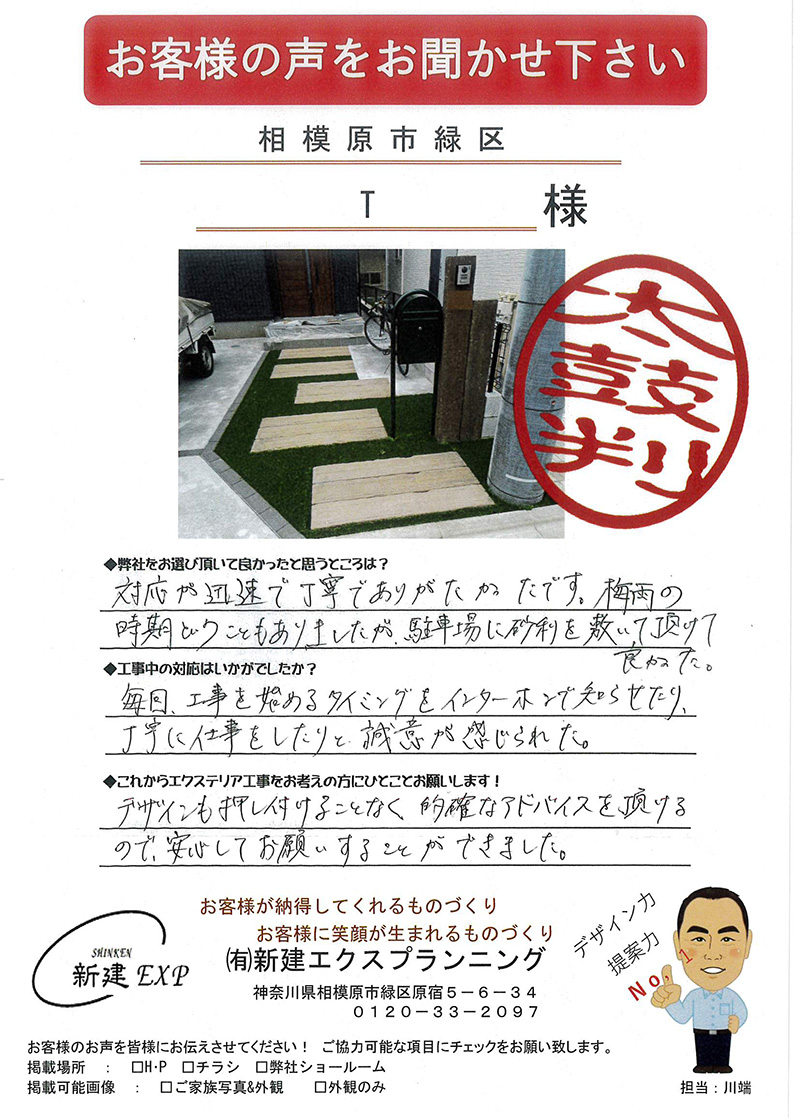 お客様の声をお聞かせ下さい
相模原市緑区
T 様
太鼓判
◆弊社をお選び頂いて良かったと思うところは？
対応が迅速で丁寧でありがたかったです。梅雨の
時期ということもありましたが、駐車場に砂利を敷いて頂けて
良かった。
◆工事中の対応はいかがでしたか？
毎回、工事を始めるタイミングをインターホンで知らせたり、
丁寧に仕事をしたりと、誠意が感じられた。
◆これからエクステリア工事をお考えの方にひとことお願いします！
デザインも押し付けることなく、的確なアドバイスを頂ける
ので、安心してお願いすることができました。
お客様が納得してくれるものづくり
お客様に笑顔が生まれるものづくり
SHINKEN
新建 EXP
㈲新建エクスプランニング
神奈川県相模原市緑区原宿５－６－３４
０１２０－３３－２０９７
デザイン力
提案力
No,1
お客様のお声を皆様にお伝えさせてください！ ご協力可能な項目にチェックをお願い致します。
掲載場所 ： □H・P □チラシ □弊社ショールーム
掲載可能画像 ： □ご家族写真&外観 □外観のみ
担当：川端